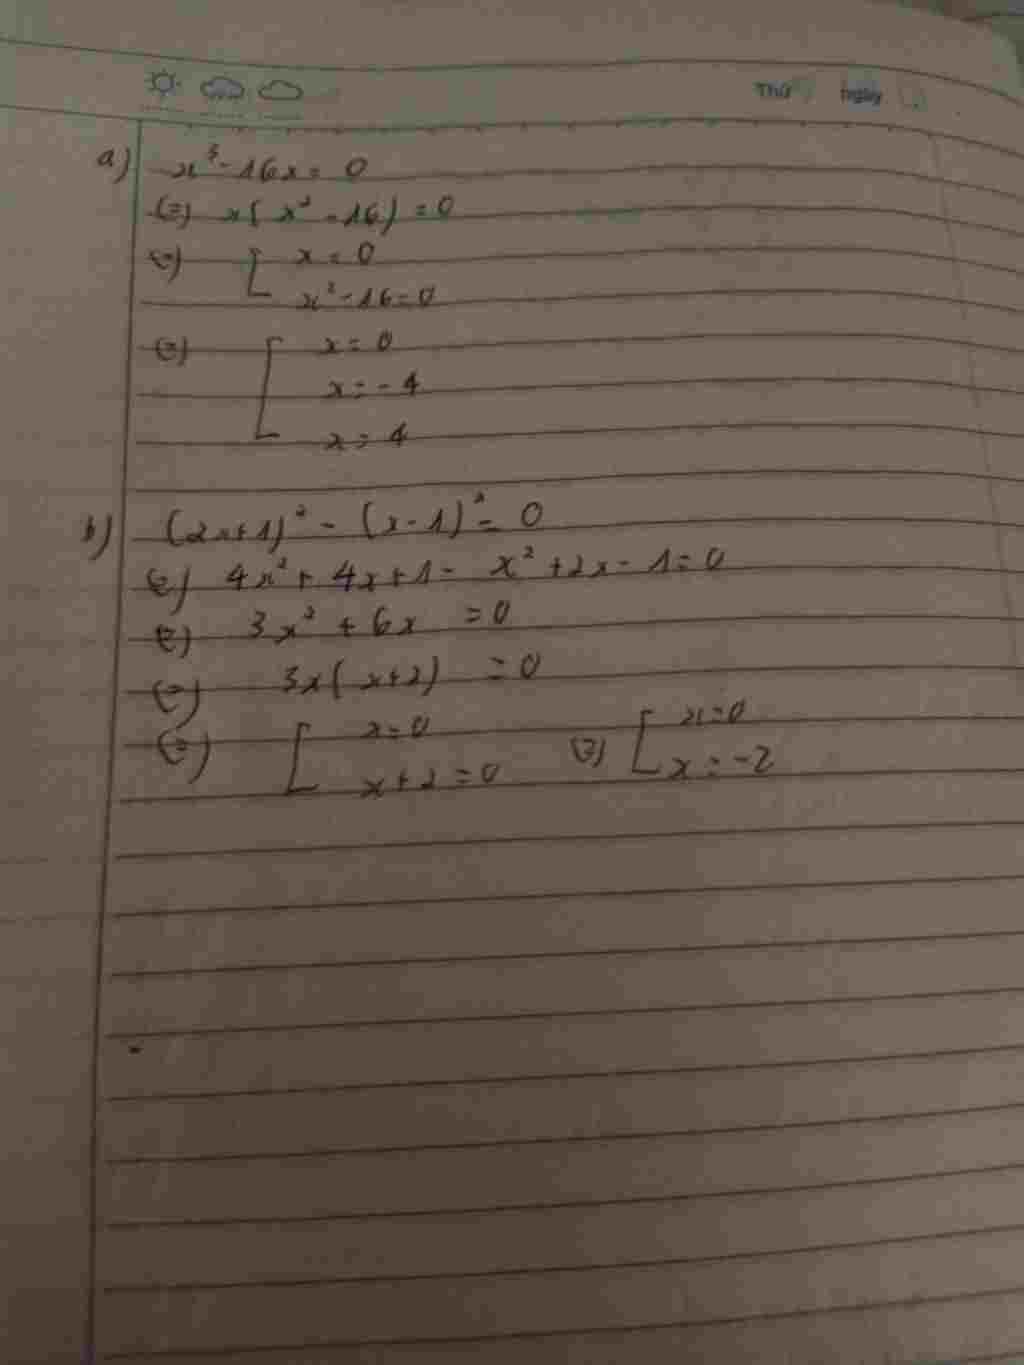 Thứ Ngày
a) x³ - 16x = 0
(=) x( x² - 16) = 0
(=) [ x = 0
x² - 16 = 0
(=) [ x = 0
x = - 4
x = 4
b) (2x+1)² - (x-1)² = 0
(=) 4x² + 4x + 1 - x² + 2x - 1 = 0
(=) 3x² + 6x = 0
(=) 3x( x+2) = 0
(=) [ x = 0 (=) [ x = 0
x + 2 = 0 x = -2